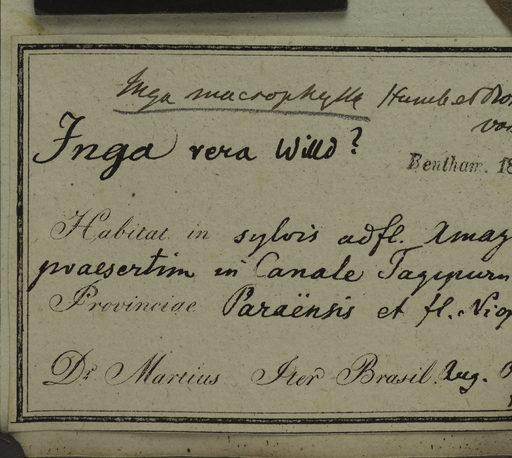 Inga macrophylla
Inga vera Willd?
Bentham. 18
Habitat in sylvis ad fl. Amaz
praesertim in Canale Tagypuru
Provinciae Paraënsis et fl.
Dr. Martius Iter Brasil. Aug.